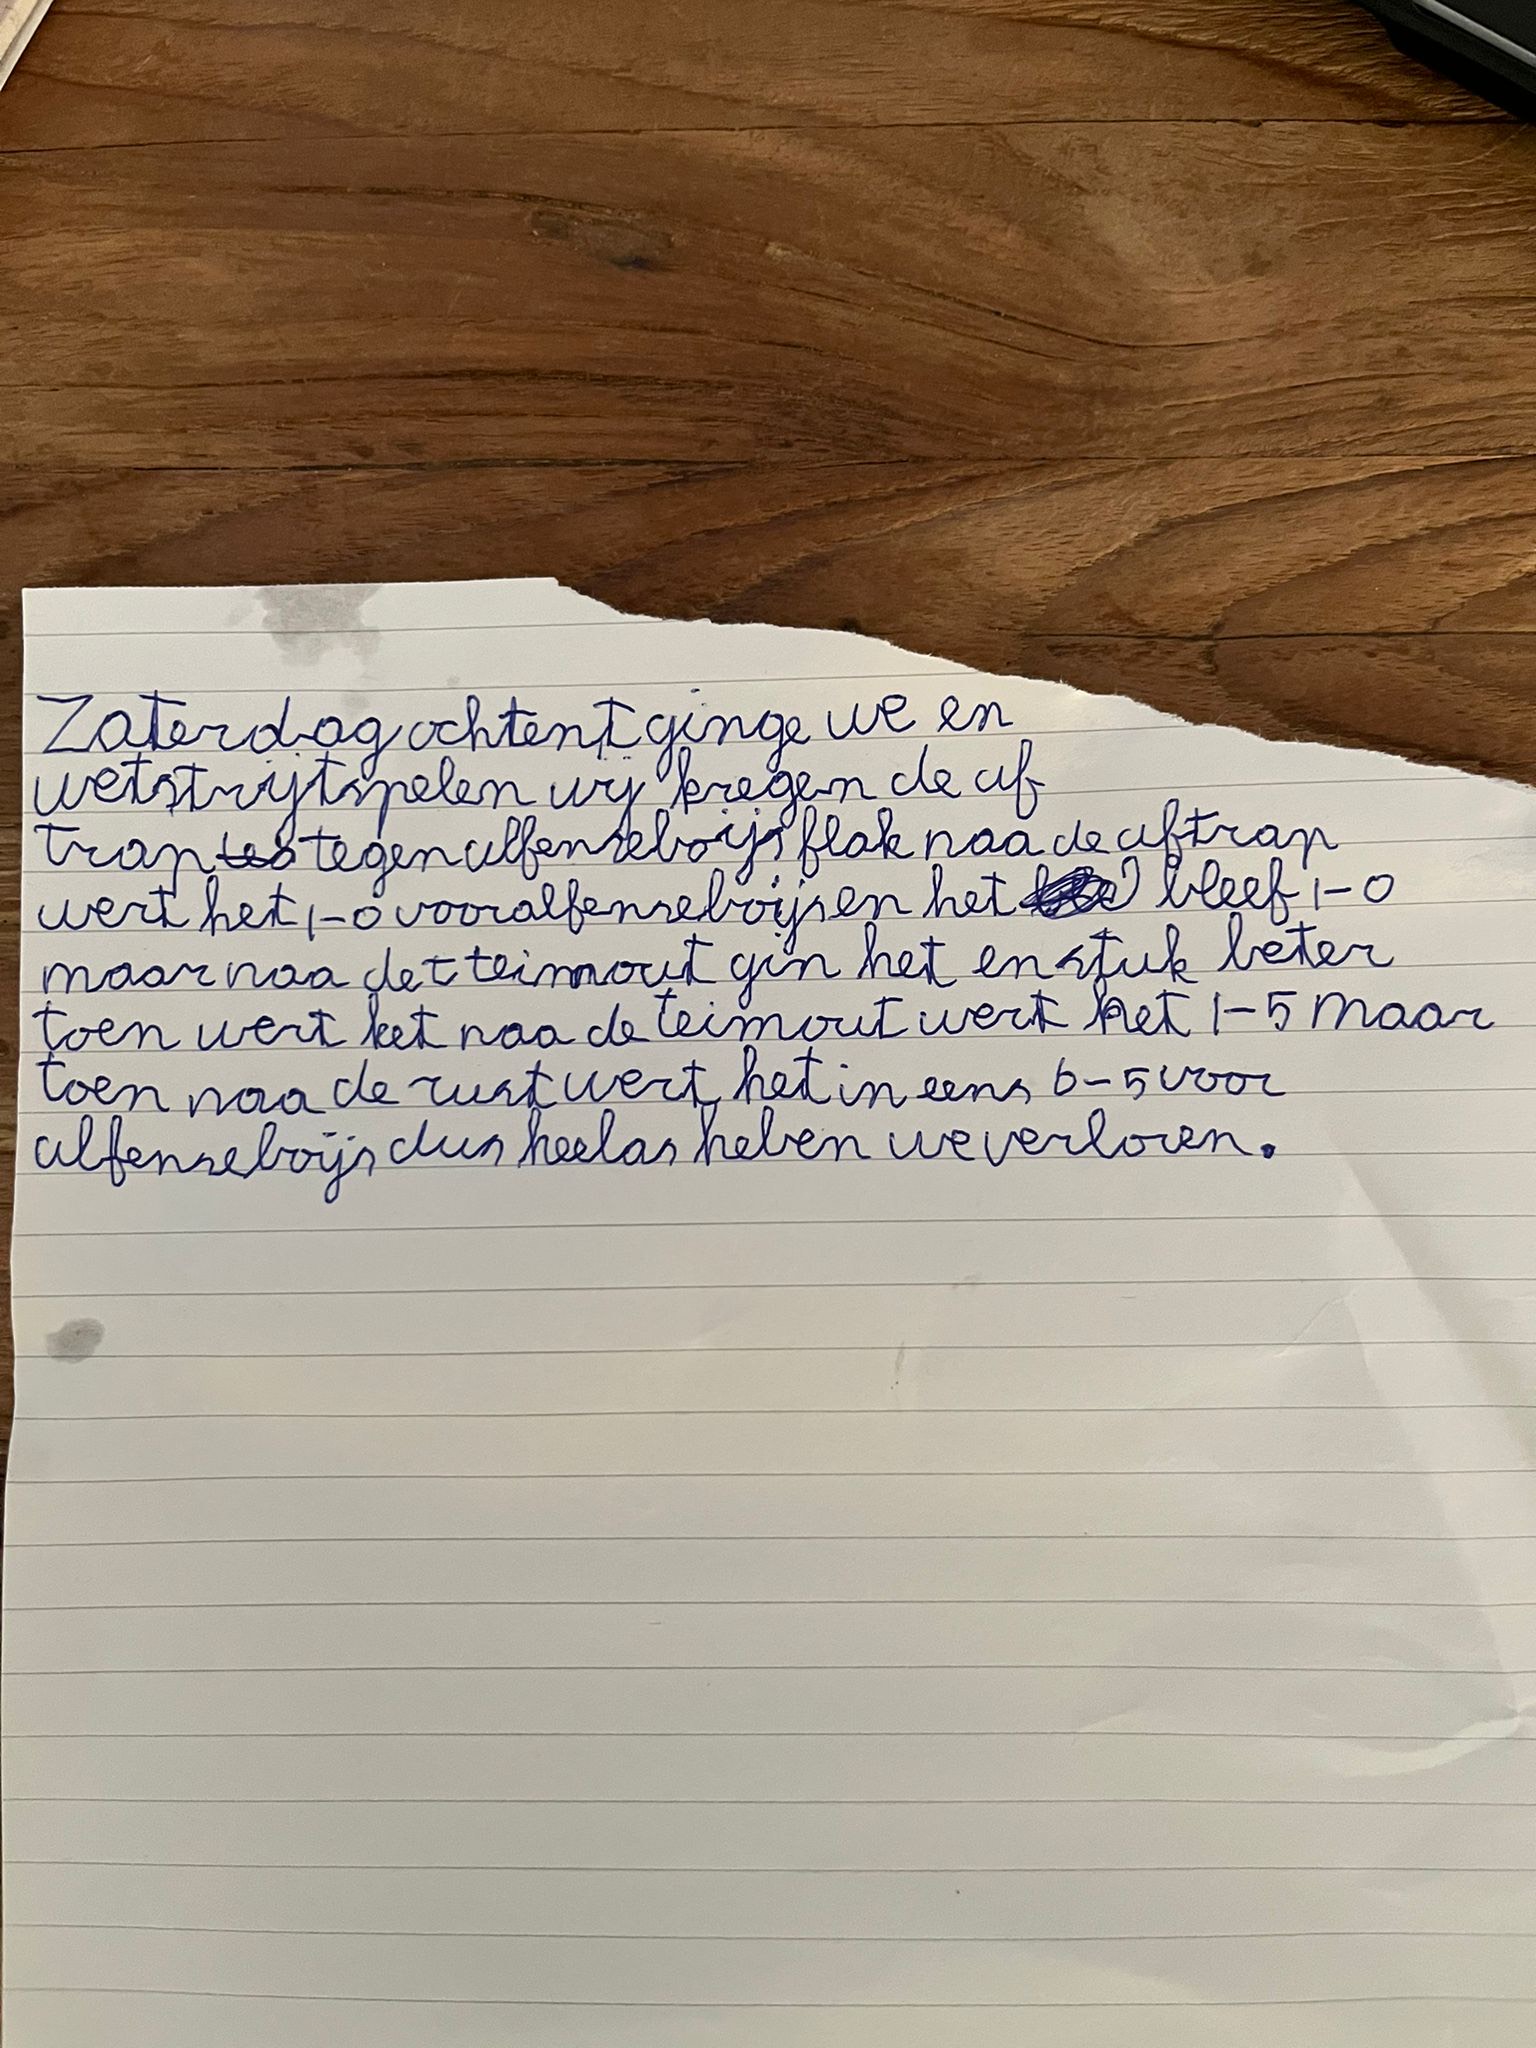 Zaterdag ochtent ginge we en
wetstrijtspelen wij kregen de af
trap tegen alfenseboijs flak naa de aftrap
wert het 1-0 voor alfenseboijs en het bleef 1-0
maar naa de t teimout gin het en stuk beter
toen wert het naa de teimout wert het 1-5 maar
toen naa de rust wert het in eens 6-5 voor
alfenseboijs dus heelas heben we verloren.